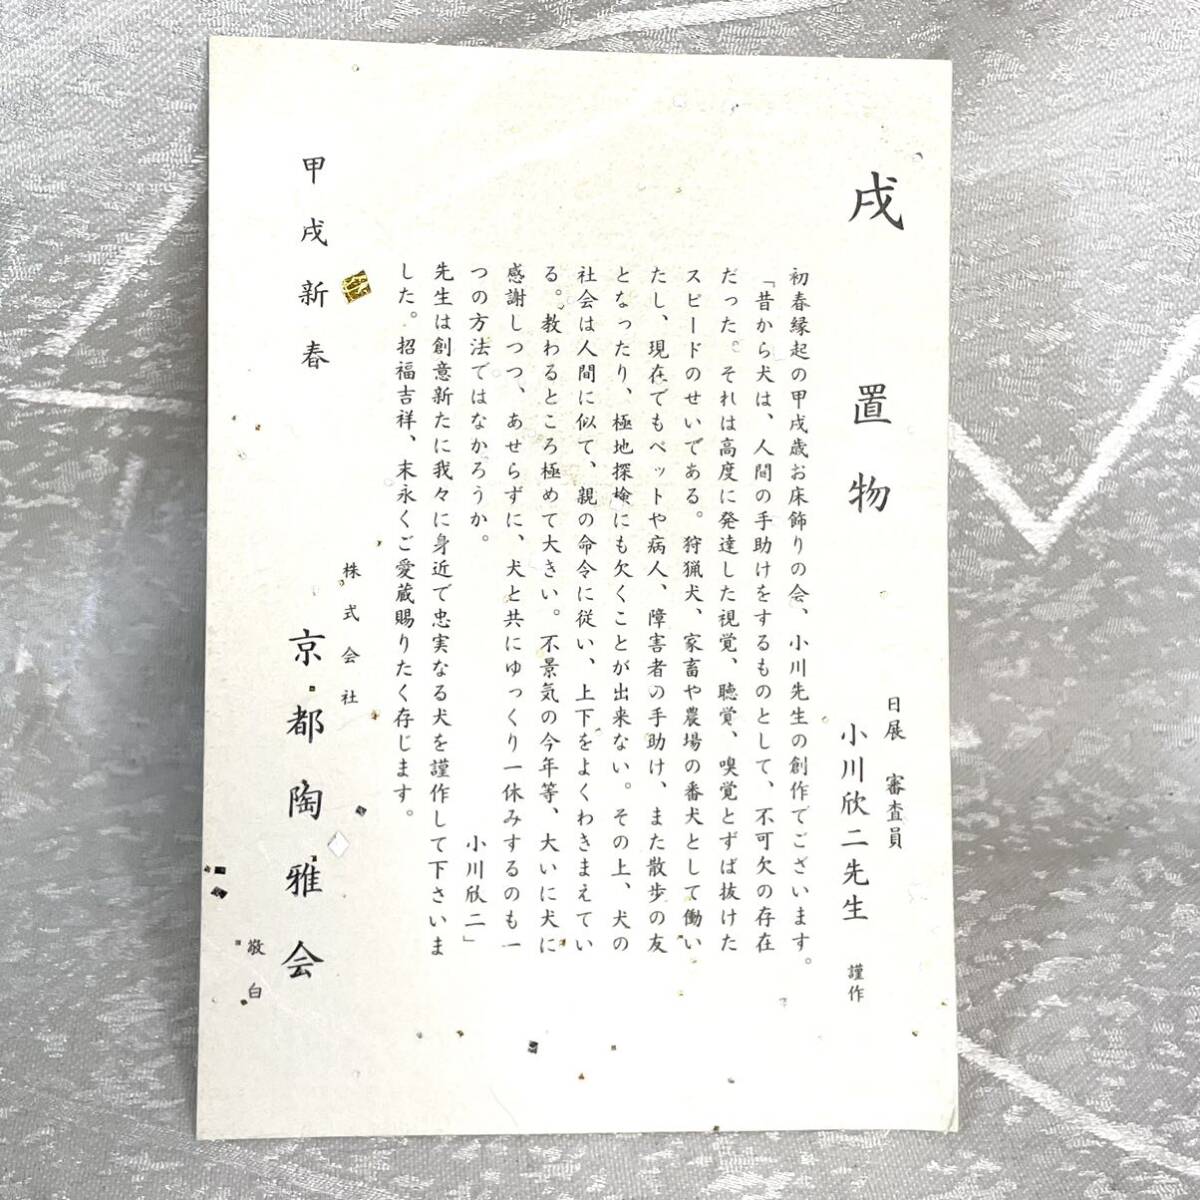 戌 置物
日展 審査員
小川欣二先生 謹作
初春縁起の甲戌歳お床飾りの会、小川先生の創作でございます。
「昔から犬は、人間の手助けをするものとして、不可欠の存在
だった。それは高度に発達した視覚、聴覚、嗅覚とずば抜けた
スピードのせいである。狩猟犬、家畜や農場の番犬として働い
たし、現在でもペットや病人、障害者の手助け、また散歩の友
となったり、極地探検にも欠くことが出来ない。その上、犬の
社会は人間に似て、親の命令に従い、上下をよくわきまえてい
る。教わるところ極めて大きい。不景気の今年等、大いに犬に
感謝しつつ、あせらずに、犬と共にゆっくり一休みするのも一
つの方法ではなかろうか。 小川欣二」
先生は創意新たに我々に身近で忠実なる犬を謹作して下さいま
した。招福吉祥、末永くご愛蔵賜りたく存じます。
甲戌新春
株式会社
京都陶雅会
敬白